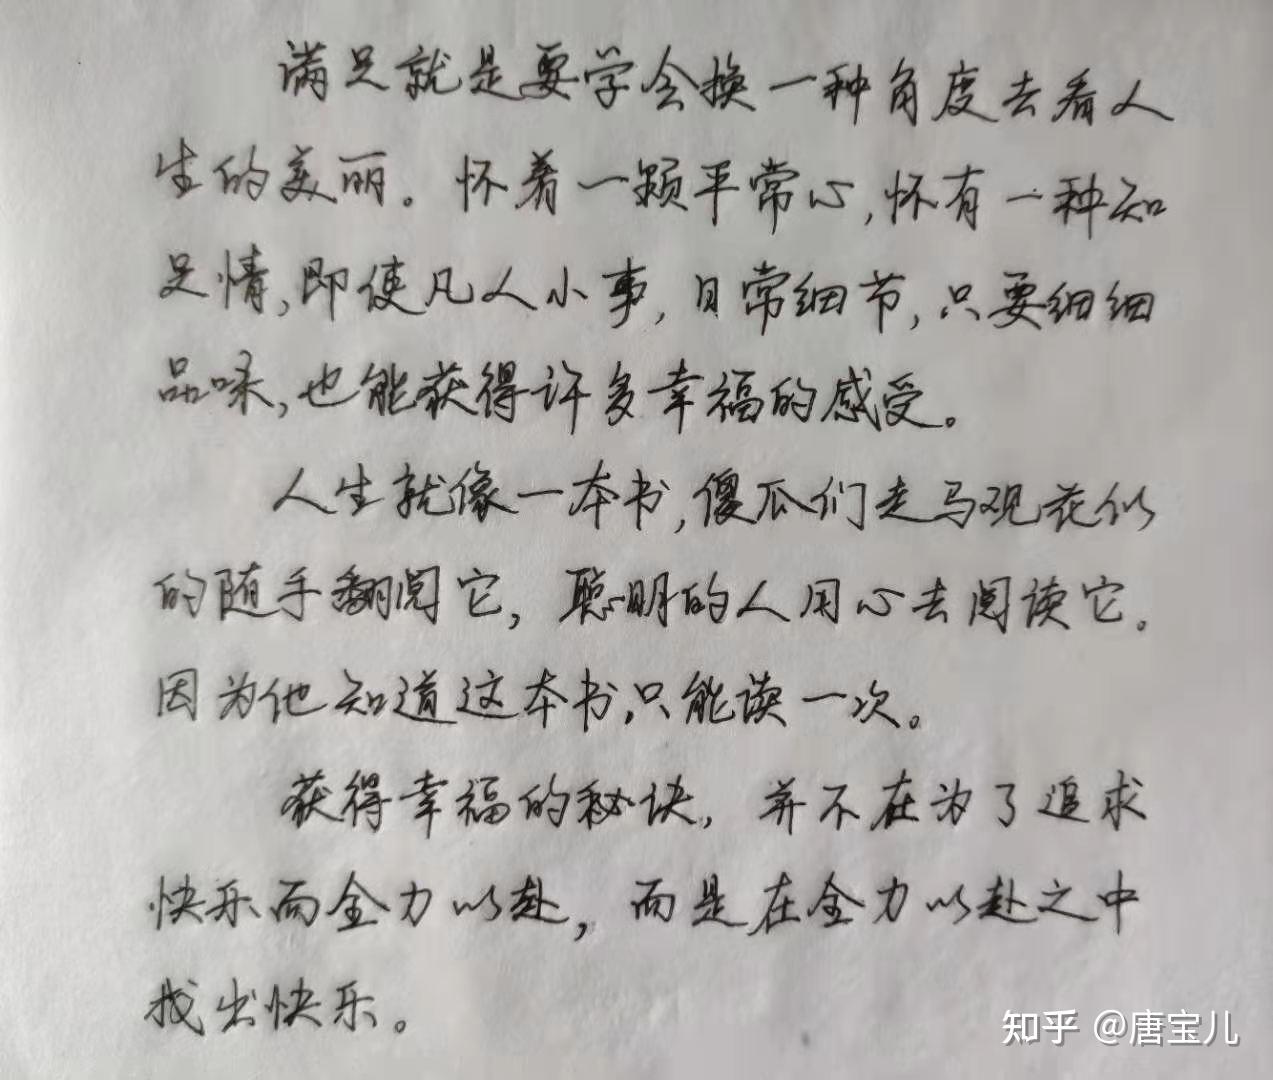 满足就是要学会换一种角度去看人
生的美丽。怀着一颗平常心,怀有一种知
足情,即使凡人小事,日常细节,只要细细
品味,也能获得许多幸福的感受。
人生就像一本书,傻瓜们走马观花似
的随手翻阅它,聪明的人用心去阅读它。
因为他知道这本书,只能读一次。
获得幸福的秘诀,并不在为了追求
快乐而全力以赴,而是在全力以赴之中
找出快乐。
知乎 @唐宝儿